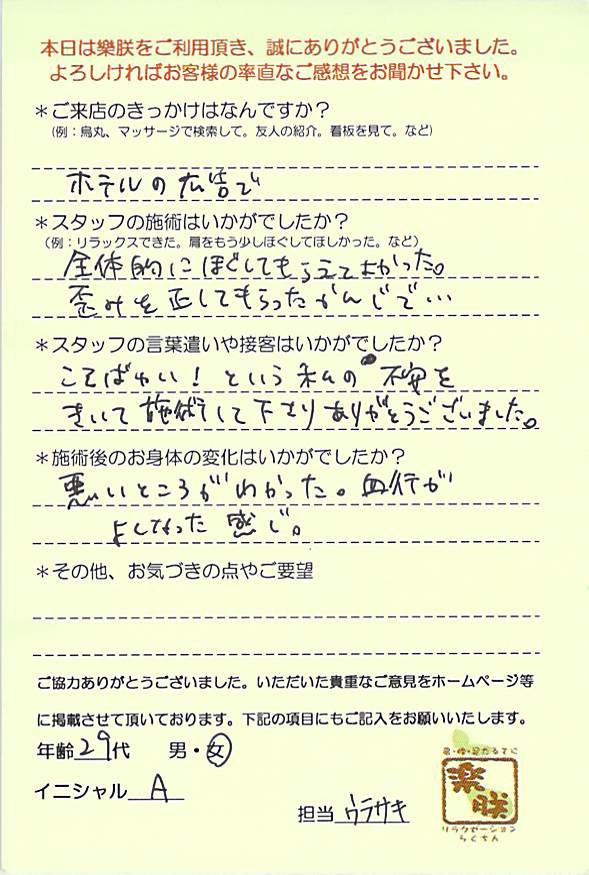 本日は樂朕をご利用頂き、誠にありがとうございました。
よろしければお客様の率直なご感想をお聞かせ下さい。
＊ご来店のきっかけはなんですか？
（例：烏丸、マッサージで検索して。友人の紹介。看板を見て。など）
ホテルの広告で
＊スタッフの施術はいかがでしたか？
（例：リラックスできた。肩をもう少しほぐしてほしかった。など）
全体的にほぐしてもらえてよかった。
歪みを正してもらったかんじで…
＊スタッフの言葉遣いや接客はいかがでしたか？
こてばやい！という私の不安を
きいて施術して下さりありがとうございました。
＊施術後のお身体の変化はいかがでしたか？
悪いところがわかった。血行が
よくなった感じ。
＊その他、お気づきの点やご要望
ご協力ありがとうございました。いただいた貴重なご意見をホームページ等
に掲載させて頂いております。下記の項目にもご記入をお願いいたします。
年齢29代 男・女
イニシャル A
担当 ウラサキ
樂朕
リラクゼーション
らくちん